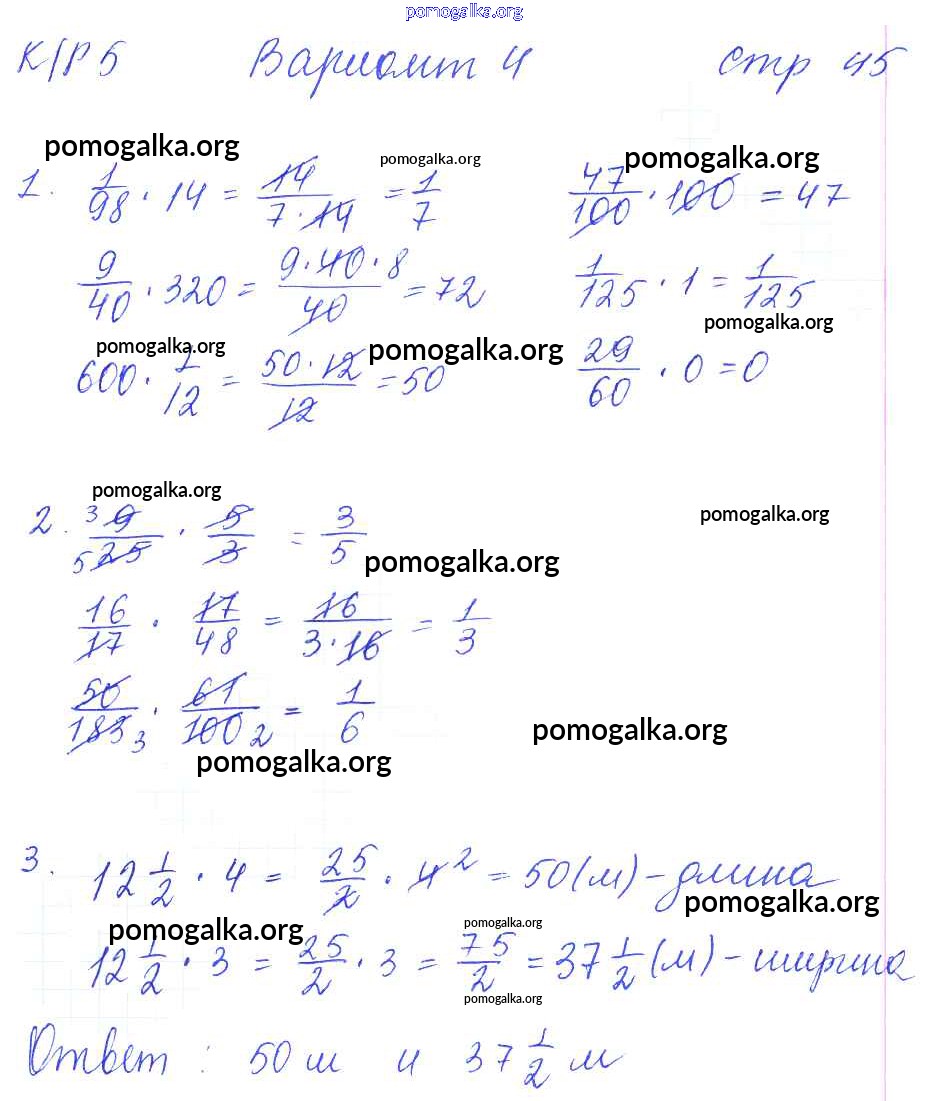 pomogalka.org
К/Р 5 Вариант 4 стр 45
pomogalka.org pomogalka.org pomogalka.org
1. 1/98 · 14 = 14/(7·14) = 1/7 47/100 · 100 = 47
9/40 · 320 = (9·40·8)/40 = 72 1/125 · 1 = 1/125
pomogalka.org pomogalka.org pomogalka.org
600 · 1/12 = (50·12)/12 = 50 29/60 · 0 = 0
pomogalka.org pomogalka.org
2. 3 9/25 5 · 5/3 = 3/5
pomogalka.org
16/17 · 17/48 = 16/(3·16) = 1/3
50/183 3 · 61/100 2 = 1/6
pomogalka.org
pomogalka.org
3. 12 1/2 · 4 = 25/2 · 4 2 = 50 (м) - длина
pomogalka.org
pomogalka.org pomogalka.org
12 1/2 · 3 = 25/2 · 3 = 75/2 = 37 1/2 (м) - ширина
pomogalka.org
Ответ : 50 м и 37 1/2 м